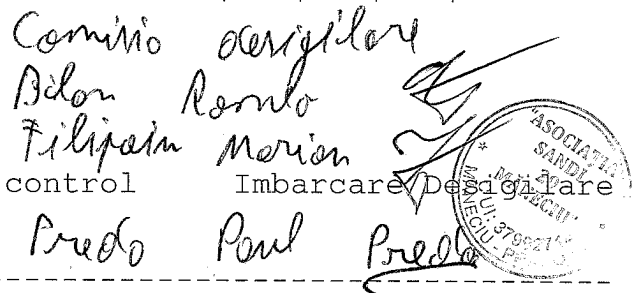 Comisio desigilare
Bilon Romulo
Filipoiu Marian
control Imbarcare/Desigilare
Preda Paul Preda
"ASOCIATIA
SANDL
MANECIU"
MANECIU - P